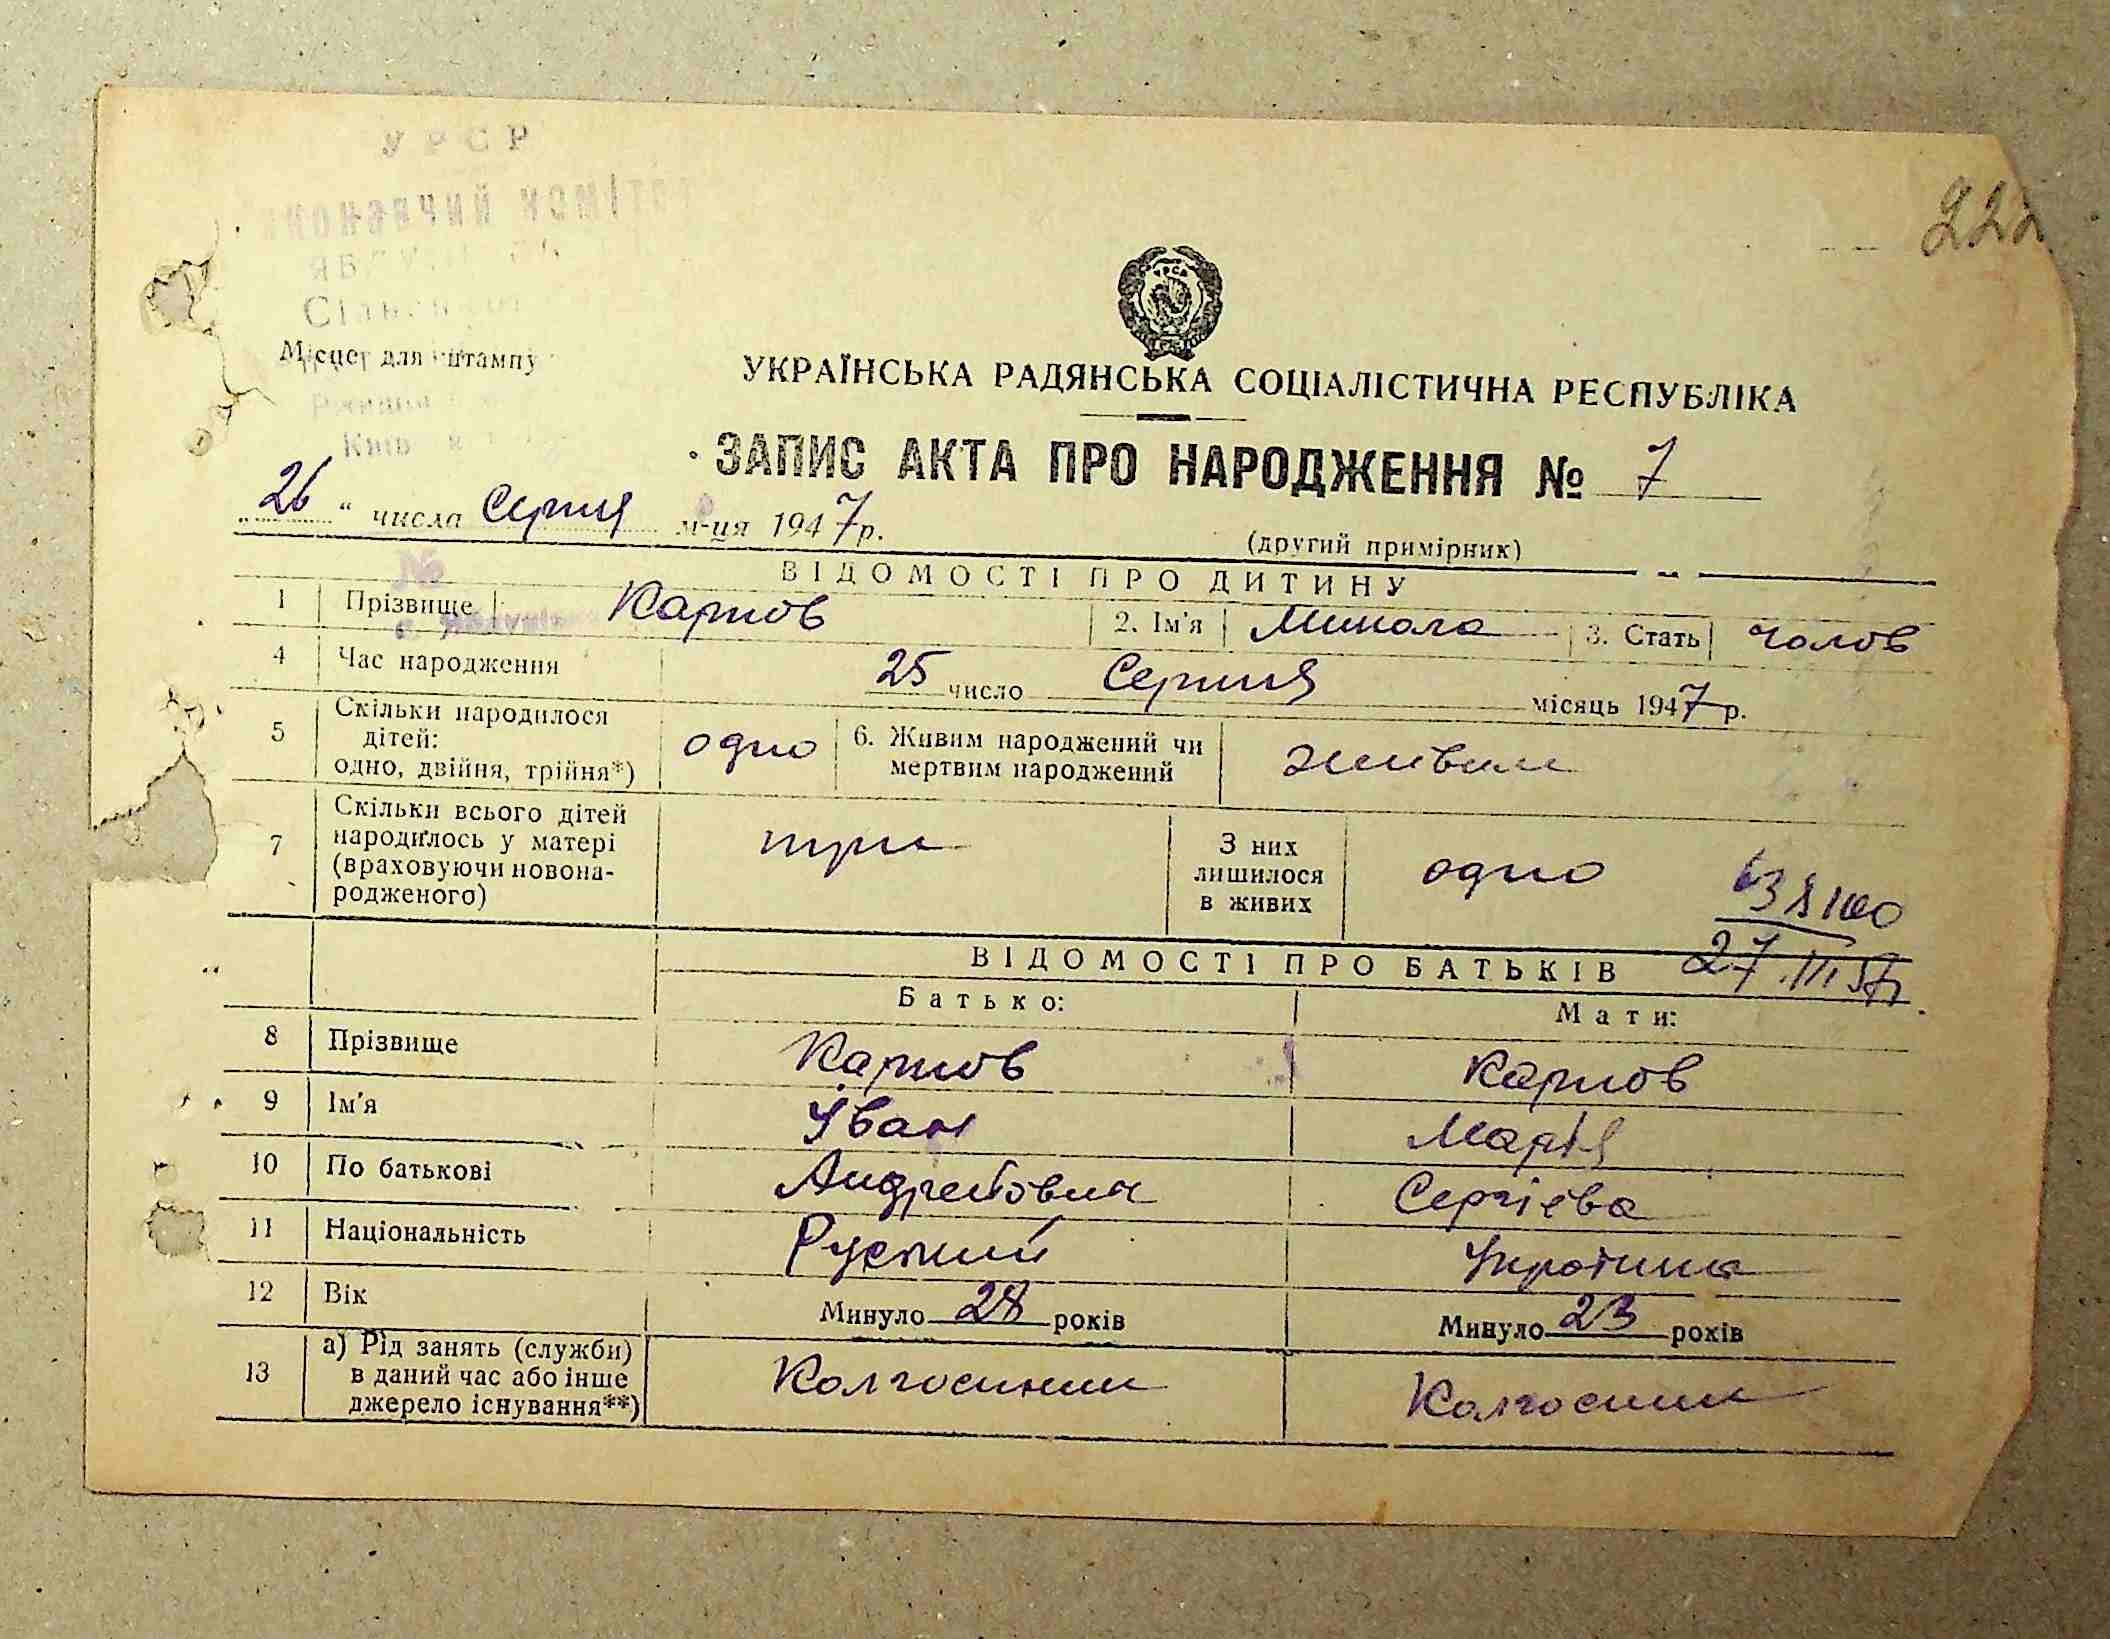 УРСР
222
Місце для штампу
УКРАЇНСЬКА РАДЯНСЬКА СОЦІАЛІСТИЧНА РЕСПУБЛІКА
ЗАПИС АКТА ПРО НАРОДЖЕННЯ № 7
„26“ числа Серпня м-ця 1947р.
(другий примірник)
ВІДОМОСТІ ПРО ДИТИНУ
1 Прізвище Карпов 2. Ім'я Микола 3. Стать чолов
4 Час народження 25 число Серпня місяць 1947 р.
5 Скільки народилося
дітей:
одно, двійня, трійня*) одно 6. Живим народжений чи
мертвим народжений живим
7 Скільки всього дітей
народилось у матері
(враховуючи новона-
родженого) три З них
лишилося
в живих одно
27.III
ВІДОМОСТІ ПРО БАТЬКІВ
Батько: Мати:
8 Прізвище Карпов Карпов
9 Ім'я Іван Марія
10 По батькові Андрейович Сергієва
11 Національність Руский Українка
12 Вік Минуло 28 років Минуло 23 років
13 а) Рід занять (служби)
в даний час або інше
джерело існування**) Колгосник Колгосник